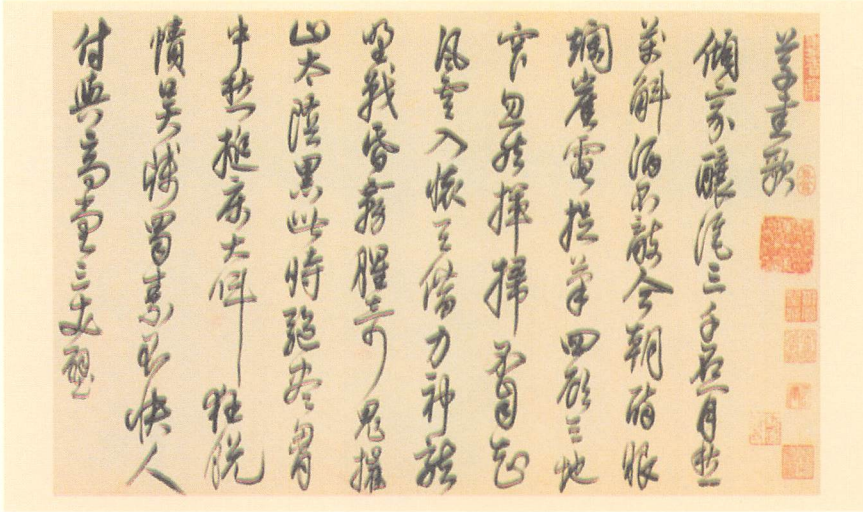 草書歌
傾家釀酒三千石閒愁
萬斛酒不敵今朝醉眼
爛巖電提筆四顧天地
窄忽然揮掃不自知
風雲入懷天借力神龍
野戰昏霧腥奇鬼摧
山太陰黑此時驅盡胸
中愁搥床大叫狂脫
幘吳牋蜀素不快人
付與高堂三丈壁